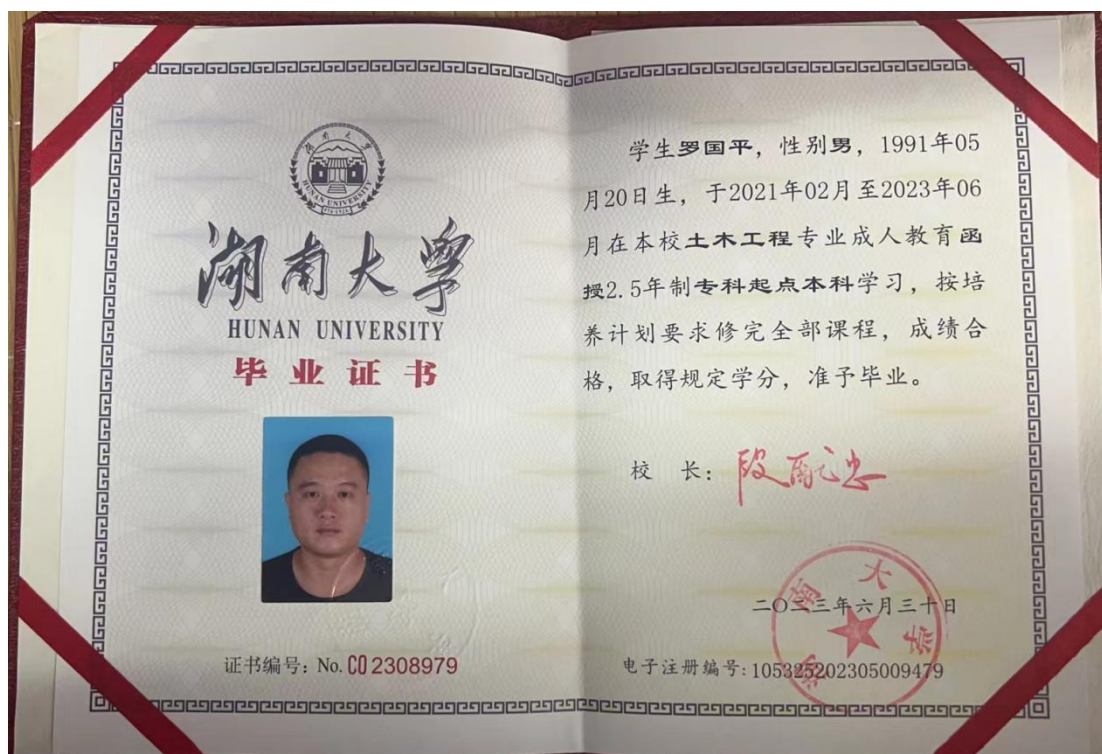 湖南大学
HUNAN UNIVERSITY
湖南大学
HUNAN UNIVERSITY
毕业证书
证书编号：No. C02308979
学生罗国平，性别男，1991年05
月20日生，于2021年02月至2023年06
月在本校土木工程专业成人教育函
授2.5年制专科起点本科学习，按培
养计划要求修完全部课程，成绩合
格，取得规定学分，准予毕业。
校 长：段献忠
二〇二三年六月三十日
湖南大学
电子注册编号：105325202305009479